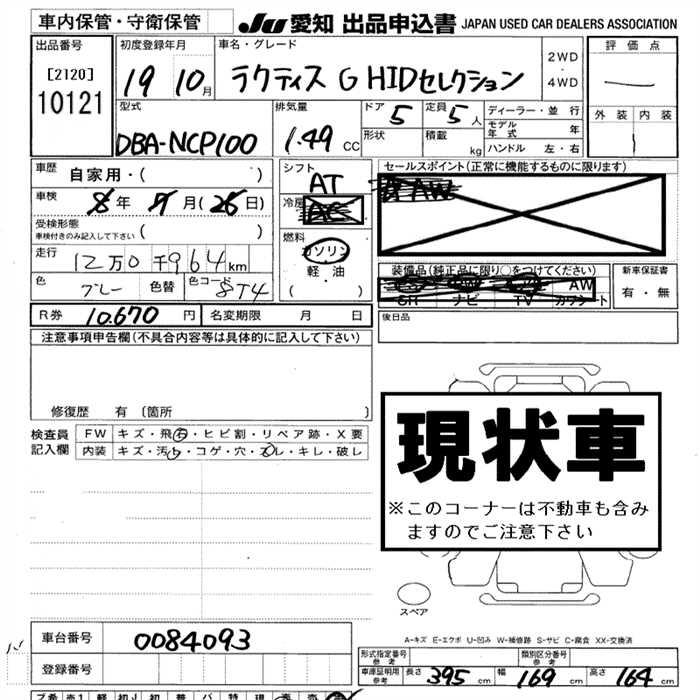 車内保管・守衛保管 JU 愛知 出品申込書 JAPAN USED CAR DEALERS ASSOCIATION
出品番号 初度登録年月 車名・グレード 評価点
[2120] 19 10月 ラクティス G HIDセレクション 2WD・4WD
10121 外装 内装
型式 排気量 ドア 5 定員 5人 ディーラー・並行
DBA-NCP100 1.49 CC 形状 積載 kg モデル年式 年
ハンドル 左・右
車歴 自家用・( ) シフト AT セールスポイント(正常に機能するものに限ります)
車検 8年 月(26日) 冷房 AC AW
受検形態 ( )
車検付きのみ記入して下さい
燃料 ガソリン・軽油・( )
走行 12万0千964km
色 グレー 色替 色コード 8T4
装備品(純正品に限り○をつけてください) 新車保証書
AW 有・無
SR ナビ TV カワシート
R券 10.670円 名変期限 月 日 後日品
注意事項申告欄(不具合内容等は具体的に記入して下さい)
修復歴 有 [箇所 ]
現状車
※このコーナーは不動車も含み
ますのでご注意下さい
検査員 FW キズ・飛石・ヒビ割・リペア跡・X要
記入欄 内装 キズ・汚れ・コゲ・穴・スレ・キレ・破レ
スペア
A-キズ E-エクボ U-凹み W-補修跡 S-サビ C-腐食 XX-交換済
車台番号 0084093
登録番号
形式指定番号 参考 類別区分番号 参考
車庫証明用 参考 長さ 395 cm 幅 169 cm 高さ 164 cm